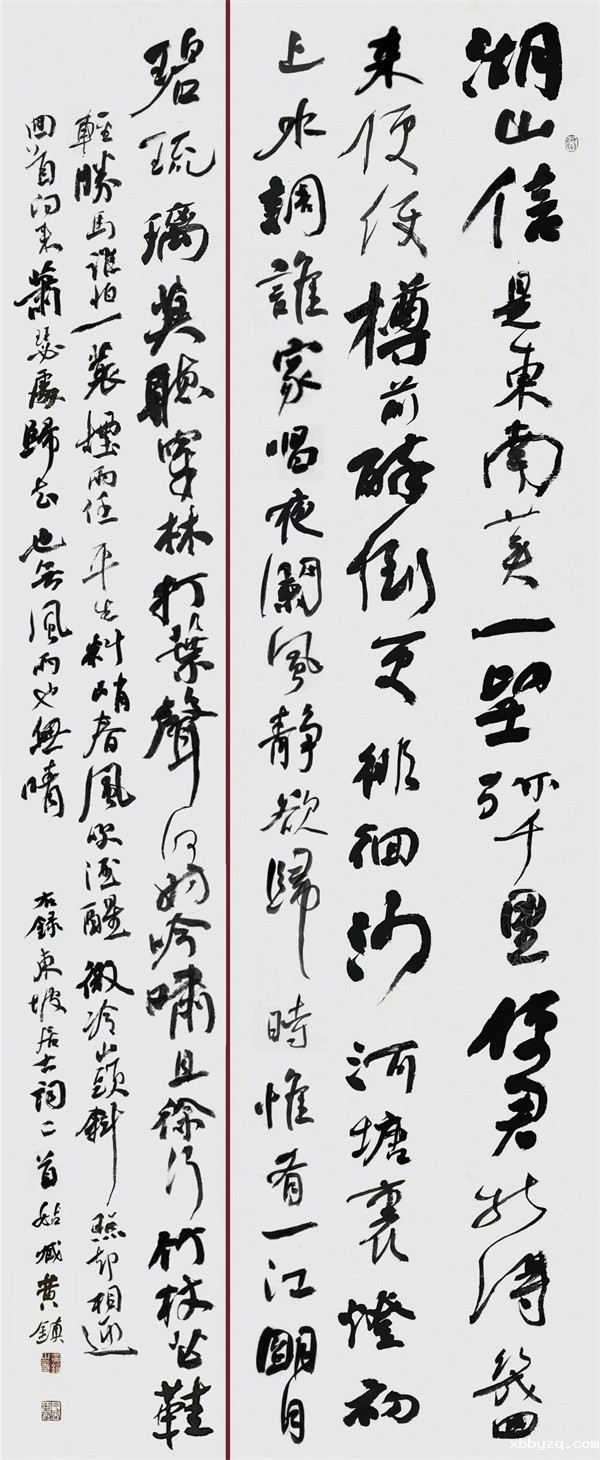 湖山信是東南美一望弥千里使君能得幾回
来便使樽前醉倒更徘徊沙河塘裏燈初
上水調誰家唱夜闌風静欲歸時惟有一江明月
碧琉璃莫聽穿林打葉聲何妨吟嘯且徐行竹杖芒鞋
輕勝馬誰怕一蓑煙雨任平生料峭春風吹酒醒微冷山頭斜照却相迎
回首向来蕭瑟處歸去也無風雨也無晴 右録東坡居士詞二首 姑臧黄鎮
xbbyzq.com